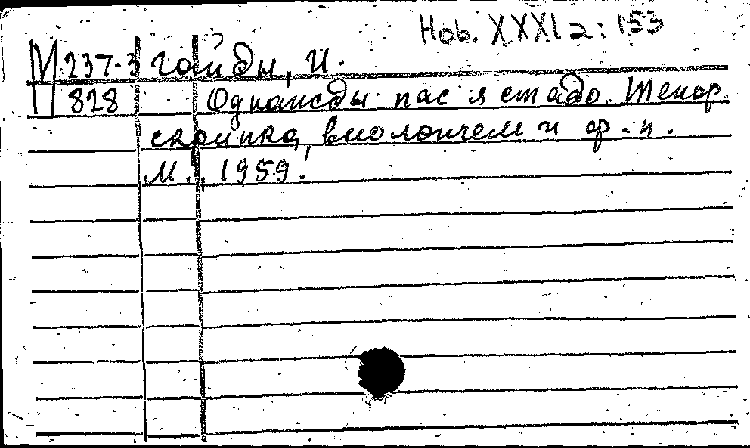 Hob. XXXI a: 153
М 237-3 Гайдн, И.
П 828 Однажды пас я стадо. Тенор,
скрипка, виолончель и ф.-п.
М., 1959.